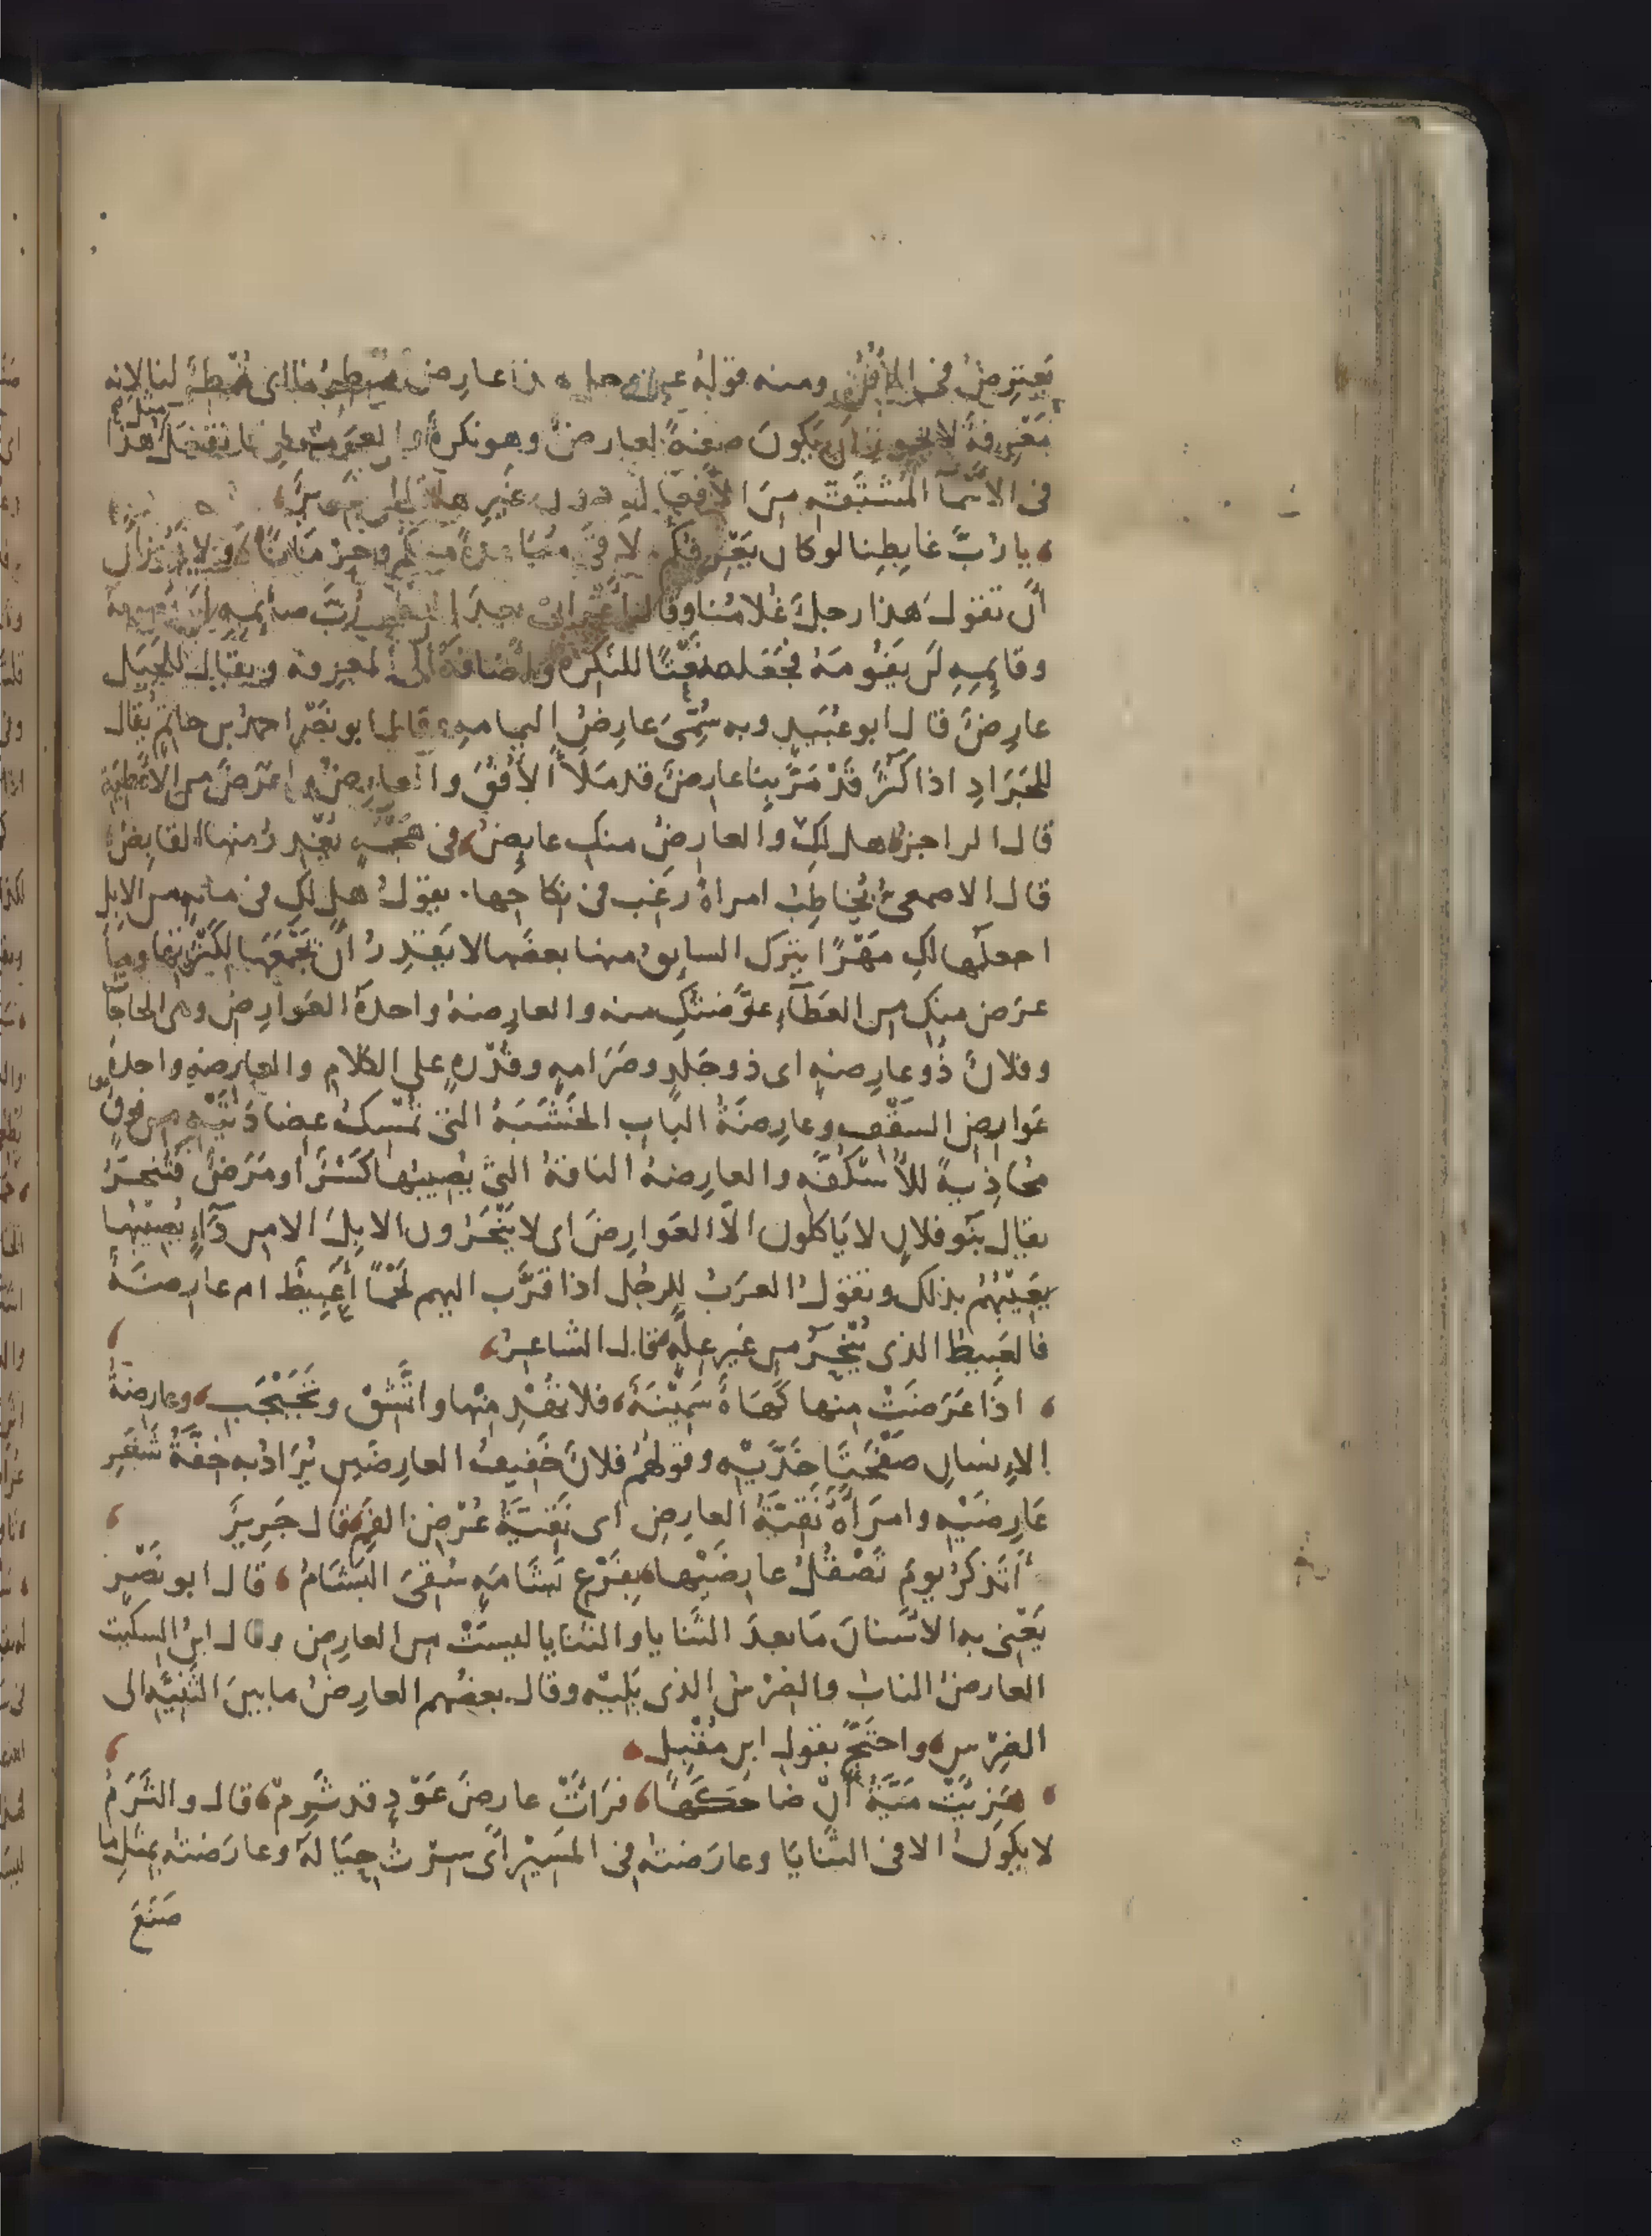 يَعْتَرِضُ في الأُفُقِ ومنه قولهُ عز وجل هذا عارِض مُمْطِرُنا اى مُمْطِرٌ لنا لانه
مَعْرِفةٌ لا يجوز ان يكونَ صفةً لعارضٍ وهو نكرةٌ والعرب انما تفعَلُ مثل هذا
في الأسْمَآ المُشْتَقَّةِ مِنَ الأفعالِ دون غيرها قال جرير
يا رُبَّ غابِطِنا لو كان يَعْرِفُكُم لاقَى مُبَاعَدةً منكم وحِرْمَانَا ولا يجوز
أن تقولَ هذا رجلٌ غُلامُنا وقال اعْرابىٌّ بعدَ الفطر رُبَّ صائِمِهِ لن يصومَهُ
وقايِمِهِ لن يَقُومَهُ فجَعَله نَعْتًا للنكرة واضافهُ الى المعرفة ويقال للجَبَل
عارِضٌ قال ابو عُبَيدٍ وبه سُمِّىَ عارِضُ اليمامهِ وقال ابو نَصْرٍ احمدُ بن حاتمٍ يُقال
للجَرَادِ اذا كَثُرَ قَدْ مَرَّ بِنا عارِضٌ قد مَلَأَ الأُفُقَ والعارِضُ ما عَرَضَ من الأعْطِيَة
قال الراجزُ هل لكِ والعارِضُ منكِ عايِضُ في هَجْمَةٍ يُغْدِرُ منها القابِضُ
قال الاصمعىُّ يُخاطِبُ امراةً رَغِب في نكاحِها يقولُ هل لكِ في مايهٍ من الابل
اجعلُها لكِ مَهْرًا يترك السايقُ منها بعضَها لا يَقْدِرُ أن يَجْمَعَها لكَثْرَتِها وما
عَرَض منكِ من العَطآءِ عوَّضتُكِ منه والعارِضةُ واحدةُ العَوارِضِ وهى الحاجاتُ
وفلانٌ ذُو عارِضةٍ اى ذو جَلَدٍ وصَرَامهٍ وقُدْرهٍ على الكلام والعارِضهُ واحدةُ
عَوارِضِ السَقْفِ وعارِضَةُ الباب الخَشَبَةُ التى تُمْسِكُ عِضادَتَيْهِ من فوقٍ
مُحاذِيةً للأُسْكُفّهِ والعارِضةُ الناقةُ التى يُصِيبُها كَسْرٌ او مَرَضٌ فتُنْحَرُ
يقال بَنو فلانٍ لا يَاكلون الّا العَوارِضَ اى لا يَنْحَرُون الابِلَ الا من دَآءٍ يُصِيبُها
يَعِيبُهُمْ بذلك وتقولُ العرَبُ للرجُل اذا قرَّب اليهم لَحْمًا أعَبِيطٌ ام عارِضَةٌ
فالعَبِيطُ الذى يُنْحَرُ من غير عِلّهٍ قال الشاعِرُ
اذا عَرَضَتْ مِنها كَهَاةٌ سَمِيْنَةٌ فلا تُهْدِ مِنْها واتَّشِقْ وتَجَبْجَبِ وعارِضَةُ
الاِنسانِ صَفْحَتَا خَدَّيْهِ وقولُهُمْ فلانٌ خَفِيفُ العارِضَينِ يُرَادُ به خِفَّةُ شَعَرِ
عَارِضَيْهِ وامرَأةٌ نَقِيَّةُ العارِضِ اى نَقِيَّةُ عُرْضِ الفَمِ قال جَرِيرٌ
أتَذكُرُ يومَ تَصْقُلُ عارِضَيْها بِفَرْعِ بَشَامَةٍ سُقِىَ البَشَامُ قال ابو نَصْرٍ
يَعْنى به الاسْنانَ مَا بعدَ الثَنايا والثنايا ليسَتْ من العارِض وقال ابنُ السكّيت
العارِضُ النابُ والضِرْسُ الذى يَلِيْهِ وقال بعضُهم العارِضُ ما بينَ الثَنِيَّهِ الى
الضِرْسِ واحتَجَّ بقولِ ابن مُقْبِلٍ
هَزِئَتْ مَيَّةُ أنْ ضاحَكْتُها فرَأتْ عارِضَ عَوْدٍ قد ثَرِمْ قال والثَرَمُ
لا يكونُ الا في الثنايَا وعارَضتُه في المَسِيْرِ اى سِرْتُ حِيَالَهُ وعارَضتُه بمثلِ ما
صَنَعَ